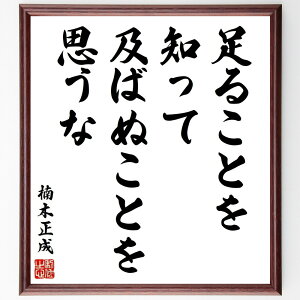 足ることを
知って
及ばぬことを
思うな
楠木正成